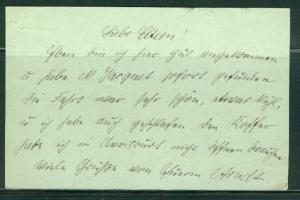 Liebe Eltern!
Eben bin ich hier gut angekommen
u habe M. Jacquet sofort gefunden
die Fahrt war sehr schön, etwas kühl,
u ich habe auch geschlafen. Den Koffer
habe ich in Avricourt nicht öffnen brauchen
Viele Grüße von Eurem